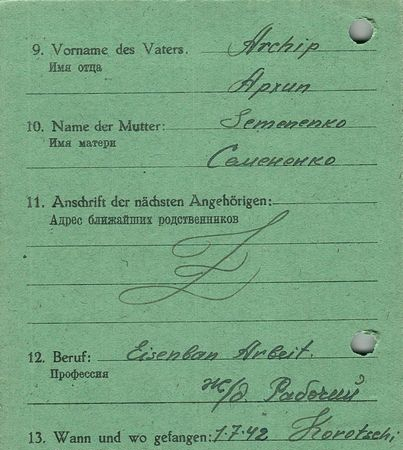 9. Vorname des Vaters. Archip
Имя отца
Архип
10. Name der Mutter: Semenenko
Имя матери
Семененко
11. Anschrift der nächsten Angehörigen:
Адрес ближайших родственников
12. Beruf: Eisenban Arbeit.
Профессия
ж/д Рабочий
13. Wann und wo gefangen: 1.7.42 Korotschi